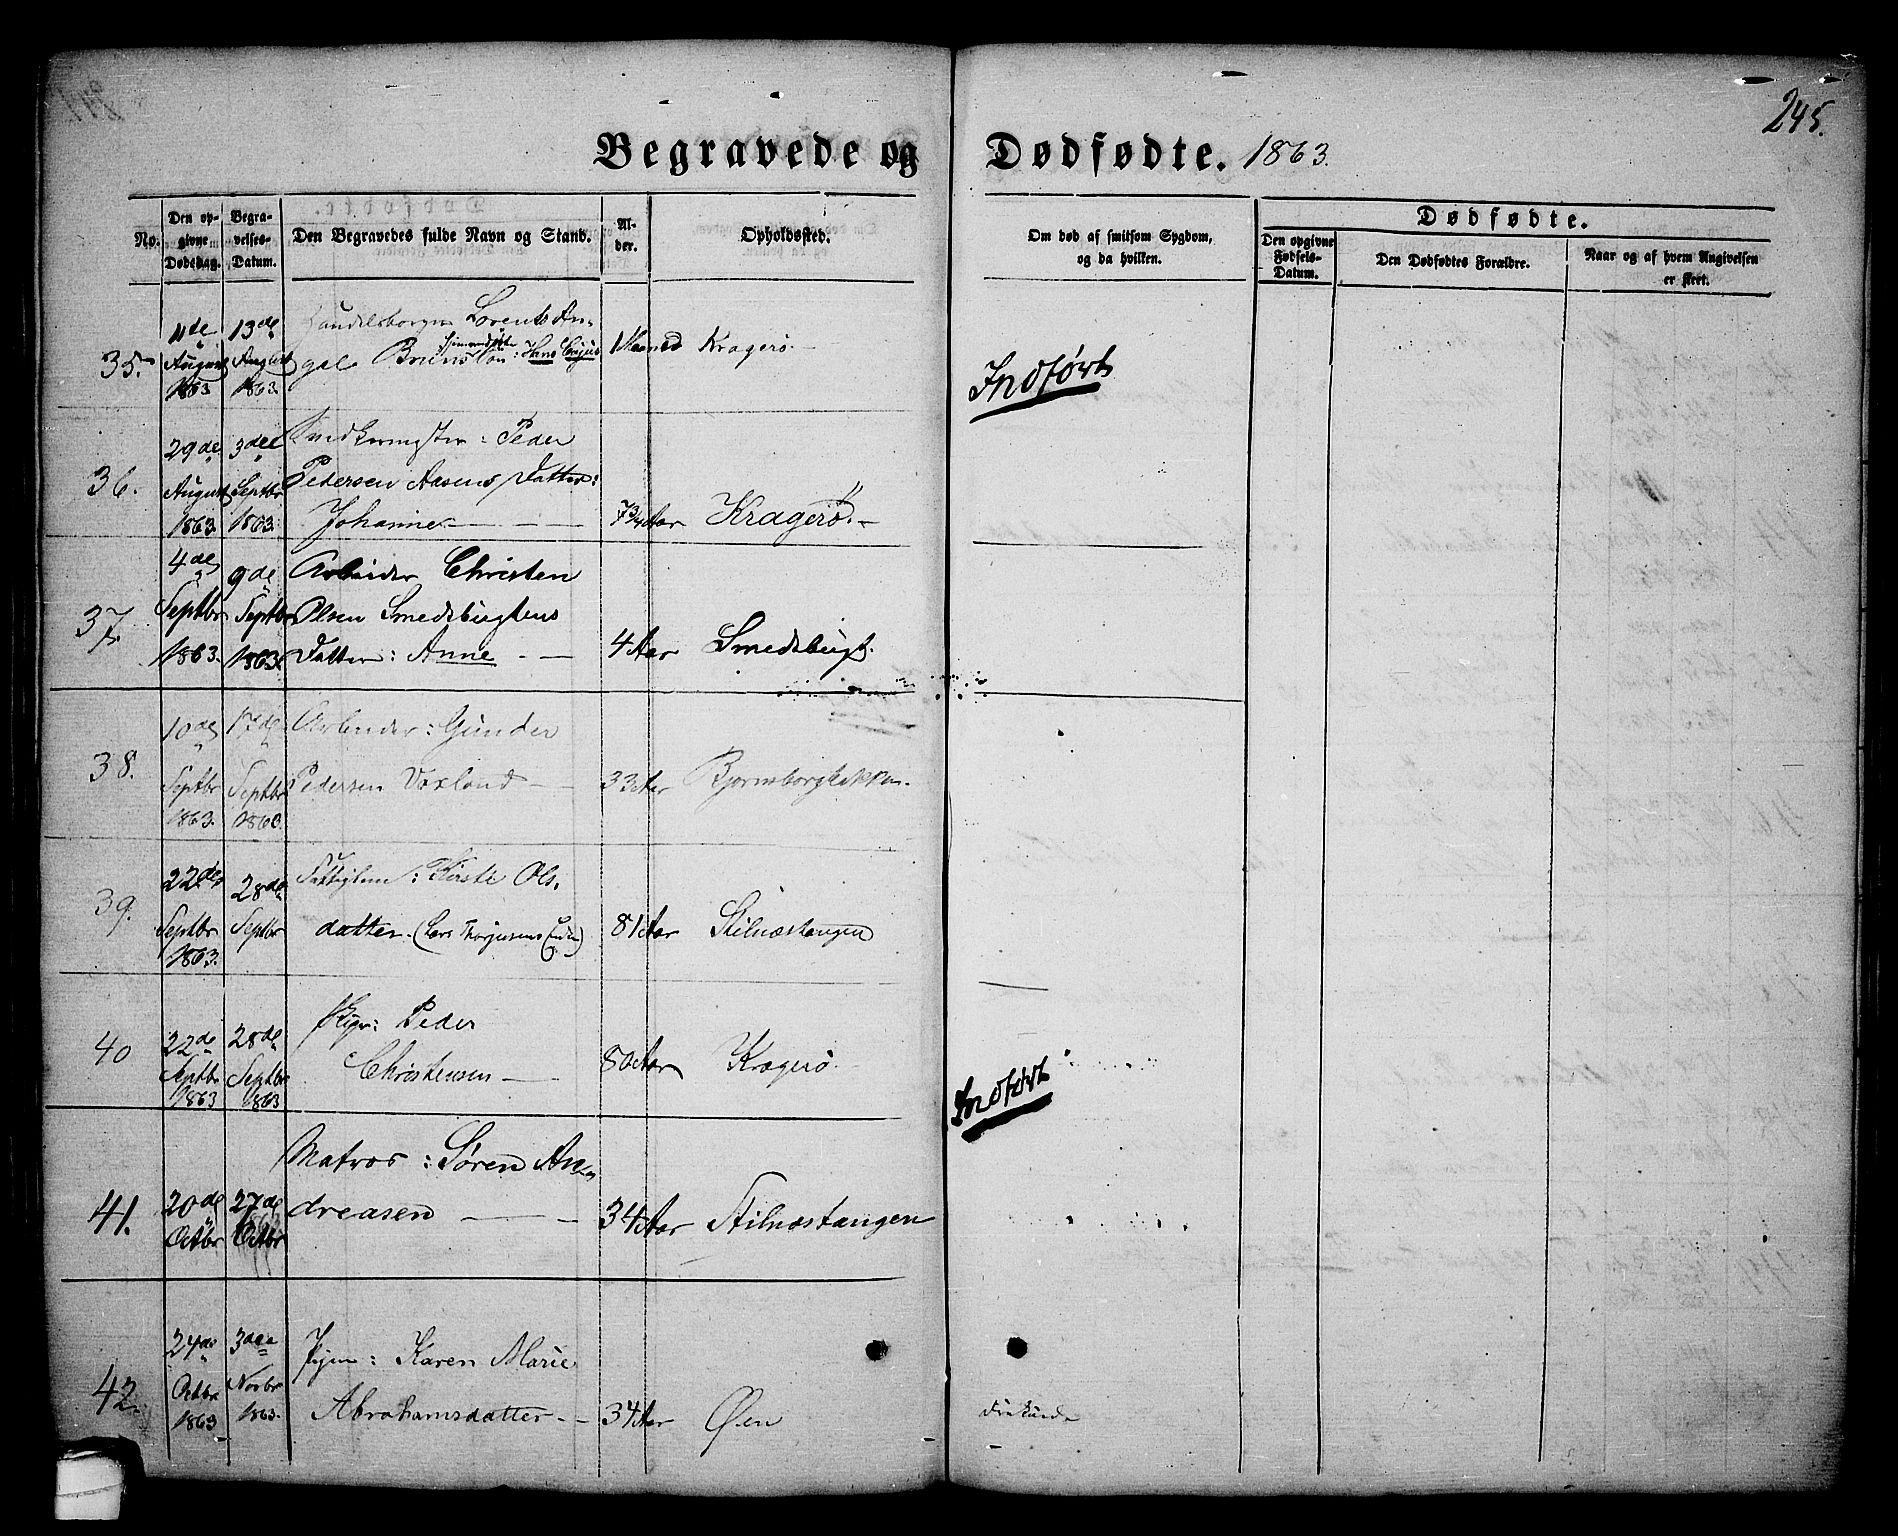 245.
Begravede og Dødfødte. 1863.
No.
Den opgivne Dødsdag.
Begravelses-Datum.
Den Begravedes fulde Navn og Stand.
Alder.
Opholdssted.
Om død af smitsom Sygdom, og da hvilken.
Dødfødte.
Den opgivne Fødsels-Datum.
Den Dødfødtes Forældre.
Naar og af hvem Angivelsen er skeet.
35.
4de August 1863
13de August 1863.
Handelsborger Lorents An-
gal Bruuns Søn: Hans
1 Maaned
Kragerø.
Indført
36.
29de August 1863.
3die Septbr 1863.
Peder
Pedersen Aasens Datter:
Johanne
7 3/4 Aar
Kragerø.
37.
4de Septbr 1863.
9de Septbr 1863.
Arbeider Christen
Olsen Smedsbugtens
Datter: Anne
4 Aar
Smedsbugt.
38.
10de Septbr 1863.
17de Septbr 1863.
Arbeider: Gunder
Pedersen Voxland
33 Aar
39.
22de Septbr 1863.
28de Septbr
Fattiglem: Kirsti Ols-
datter. (Lars Thorjusens Enke)
81 Aar
Stilnæstangen
40
22de Septbr 1863
28de Septbr 1863
Peder
Christensen
80 Aar
Kragerø.
Indført
41.
20de Octbr
27de Octbr
Matros: Søren An-
dreasen
34 Aar
Stilnæstangen
42.
24de Octbr 1863
3die Novbr 1863.
Pigen: Karen Marie
Abrahamsdatter
34 Aar
Øen